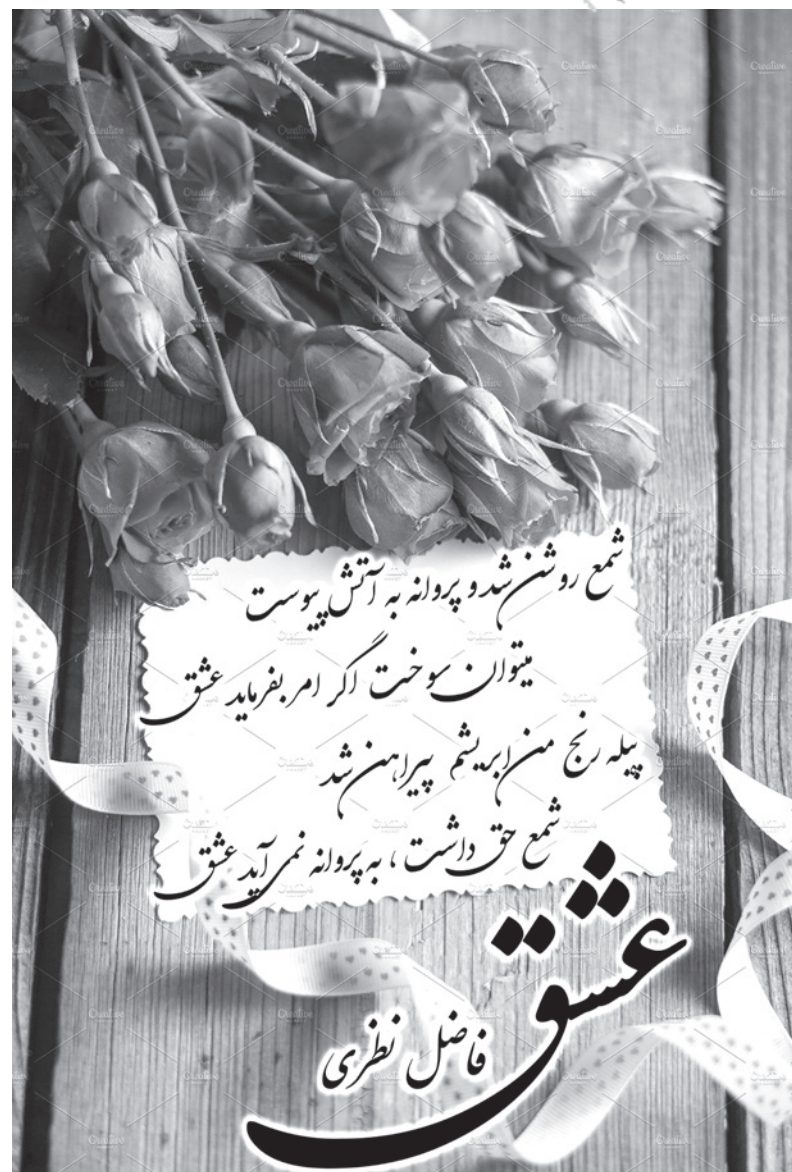 شمع روشن شد و پروانه به آتش پیوست
میتوان سوخت اگر امر بفرماید عشق
پیله رنج من ابریشم پیراهن شد
شمع حق داشت ، به پروانه نمی آید عشق
عشق
فاضل نظری